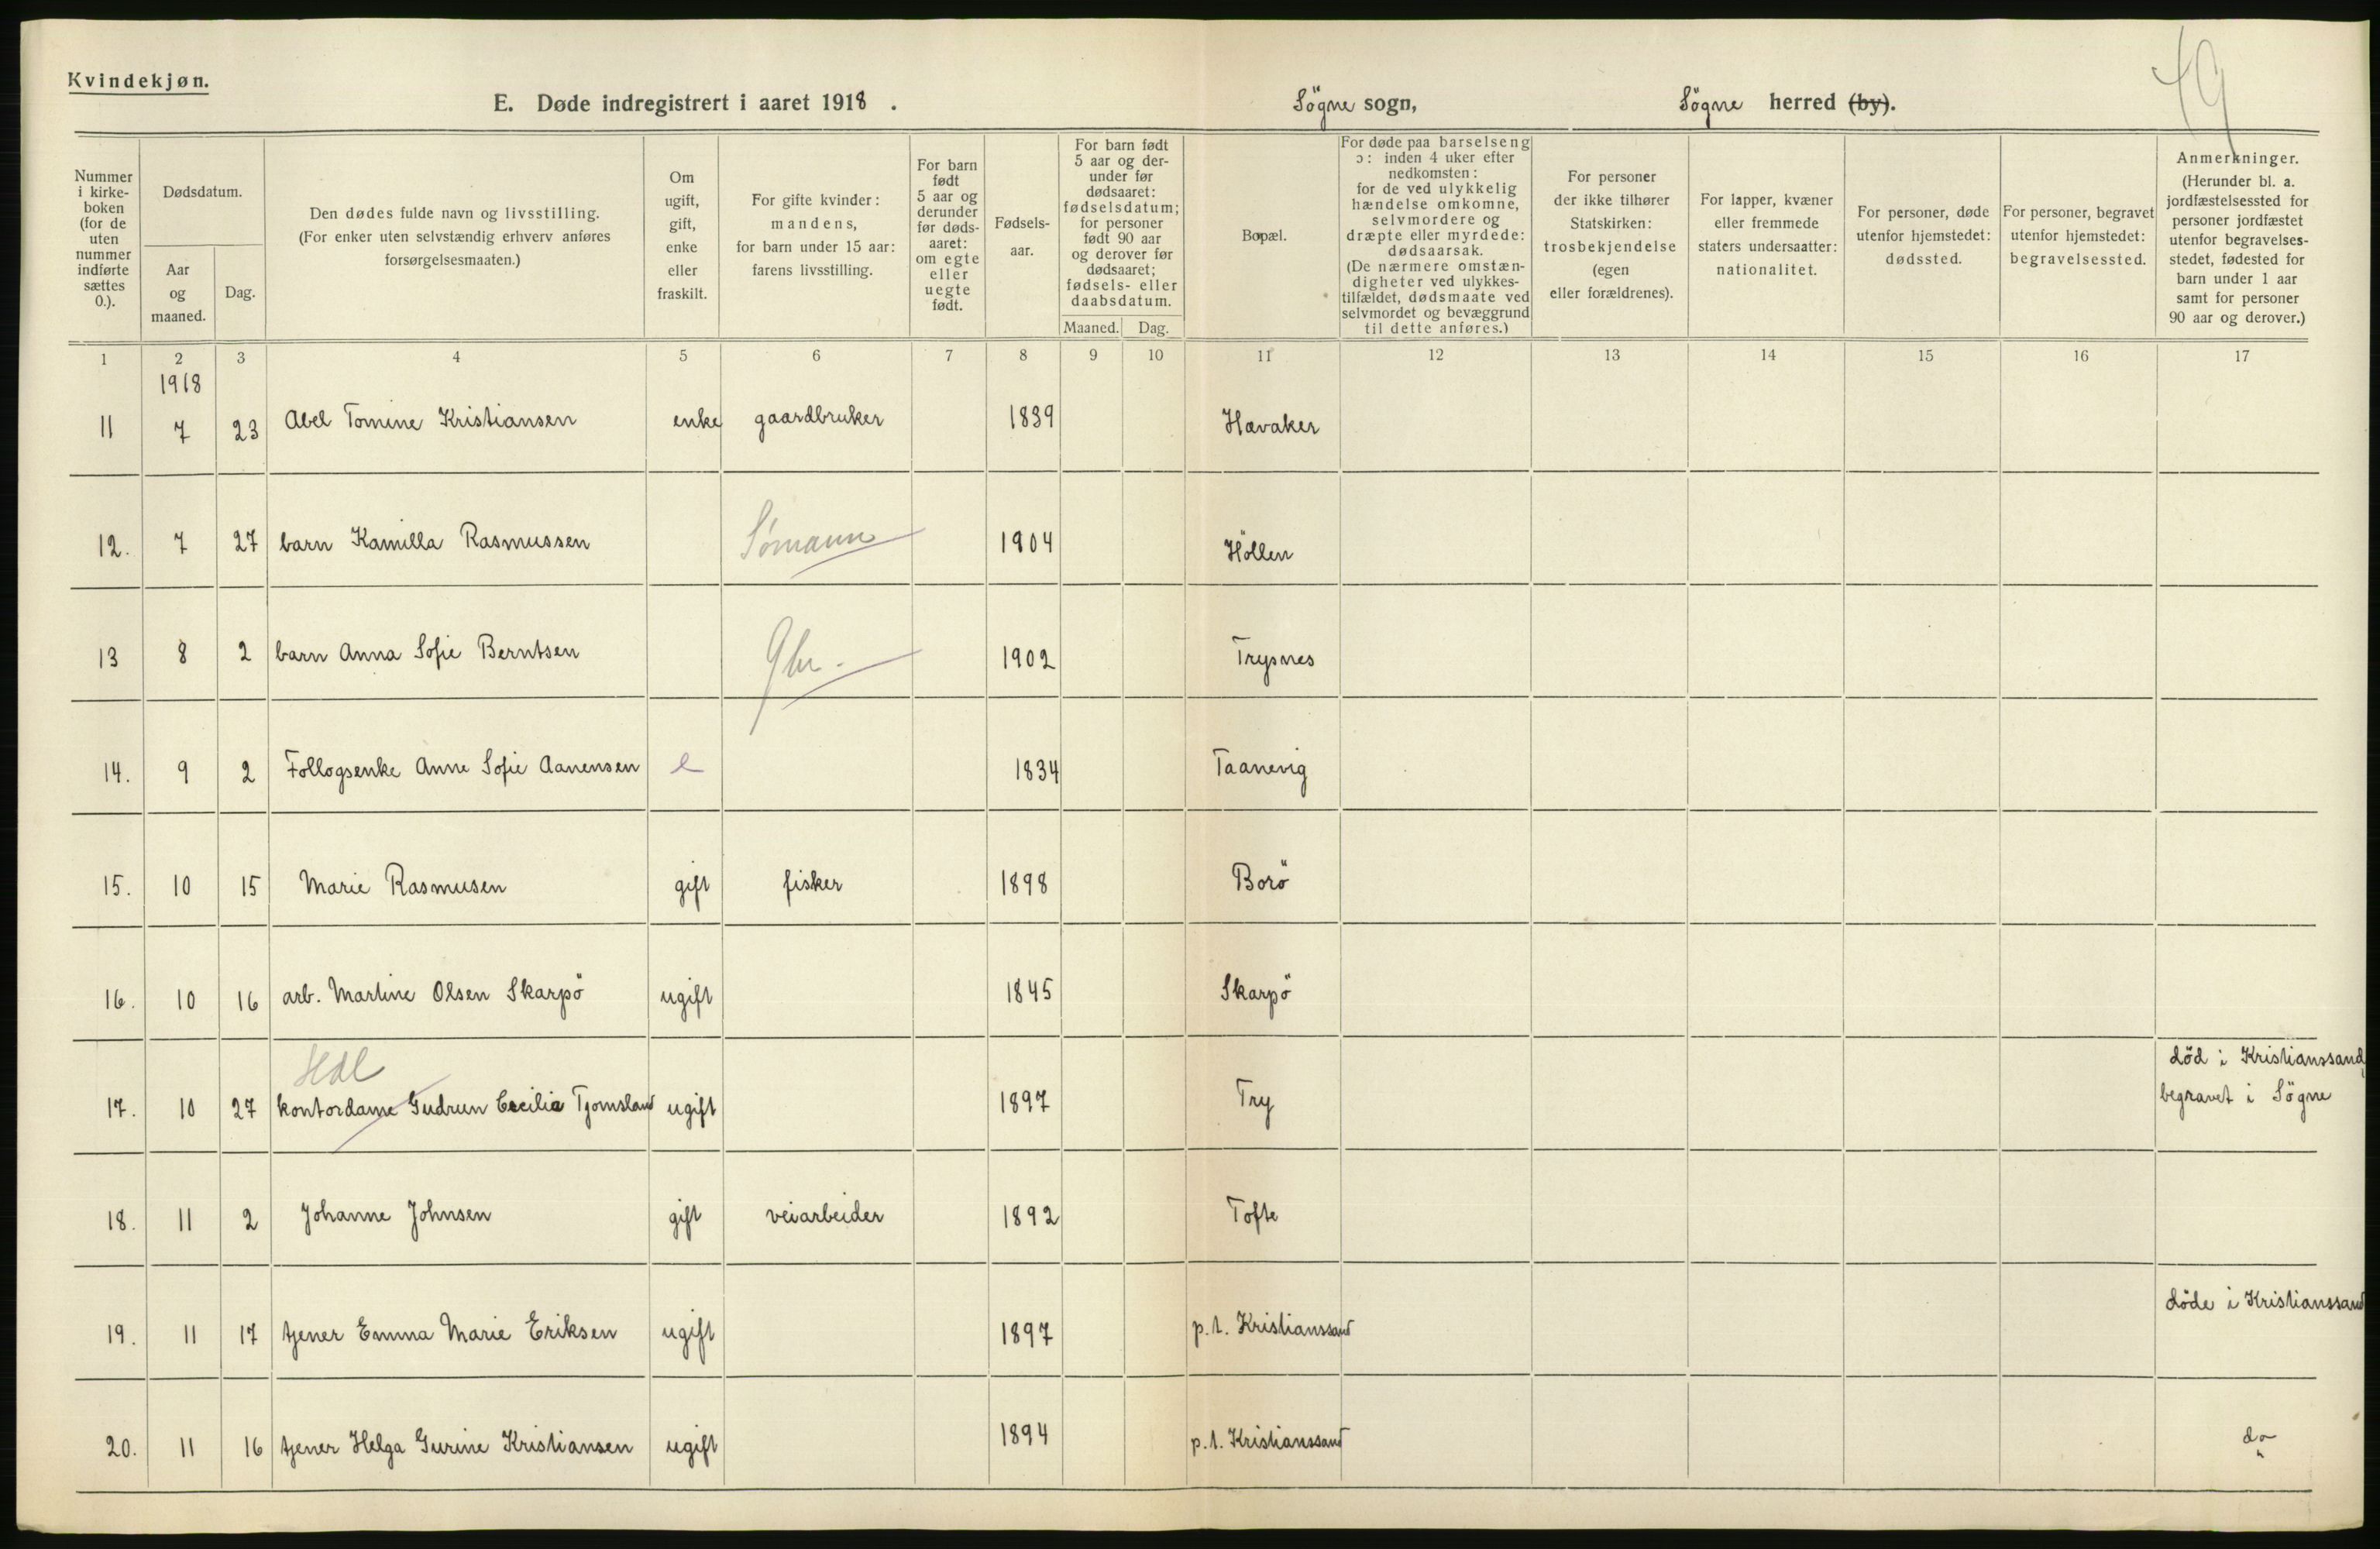 Kvindekjøn.
E. Døde indregistrert i aaret 1918 . Sögne sogn, Sögne herred (by).
Nummer i kirke- boken (for de uten nummer indførte sættes 0.).
Dødsdatum.
Aar og maaned.
Dag.
Den dødes fulde navn og livsstilling.
(For enker uten selvstændig erhverv anføres
forsørgelsesmaaten.)
Om ugift, gift, enke eller fraskilt.
For gifte kvinder:
mandens,
for barn under 15 aar:
farens livsstilling.
For barn født 5 aar og derunder før døds- aaret: om egte eller uegte født.
Fødsels- aar.
For barn født 5 aar og der- under før dødsaaret: fødselsdatum; for personer født 90 aar og derover før dødsaaret; fødsels- eller daabsdatum.
Maaned. Dag.
Bopæl.
For døde paa barselseng
ɔ: inden 4 uker efter
nedkomsten:
for de ved ulykkelig
hændelse omkomne,
selvmordere og
dræpte eller myrdede:
dødsaarsak.
(De nærmere omstæn-
digheter ved ulykkes-
tilfældet, dødsmaate ved
selvmordet og bevæggrund
til dette anføres.)
For personer
der ikke tilhører
Statskirken:
trosbekjendelse
(egen
eller forældrenes).
For lapper, kvæner
eller fremmede
staters undersaatter:
nationalitet.
For personer, døde
utenfor hjemstedet:
dødssted.
For personer, begravet
utenfor hjemstedet:
begravelsessted.
Anmerkninger.
(Herunder bl. a.
jordfæstelsessted for
personer jordfæstet
utenfor begravelses-
stedet, fødested for
barn under 1 aar
samt for personer
90 aar og derover.)
1 2 3 4 5 6 7 8 9 10 11 12 13 14 15 16 17
1918
11 7 23 Abel Tomine Kristiansen enke gaardbruker 1839 Havaker
12. 7 27 barn Kamilla Rasmussen Sømann 1904 Höllen
13 8 2 barn Anna Sofie Berntsen Gbr. 1902 Trysnes
14. 9 2 Follogsenke Anne Sofie Aanensen e 1834 Taanevig
15. 10 15 Marie Rasmusen gift fisker 1898 Borö
16. 10 16 arb. Martine Olsen Skarpö ugift 1845 Skarpö
Hdl
17. 10 27 kontordame Gudrun Cecilia Tjomsland ugift 1897 Try död i Kristianssand,
begravet i Sögne
18. 11 2 Johanne Johnsen gift veiarbeider 1892 Tofte
19. 11 17 tjener Emma Marie Eriksen ugift 1897 p.t. Kristianssand döde i Kristianssand
20. 11 16 tjener Helga Gurine Kristiansen ugift 1894 p.t. Kristianssand do